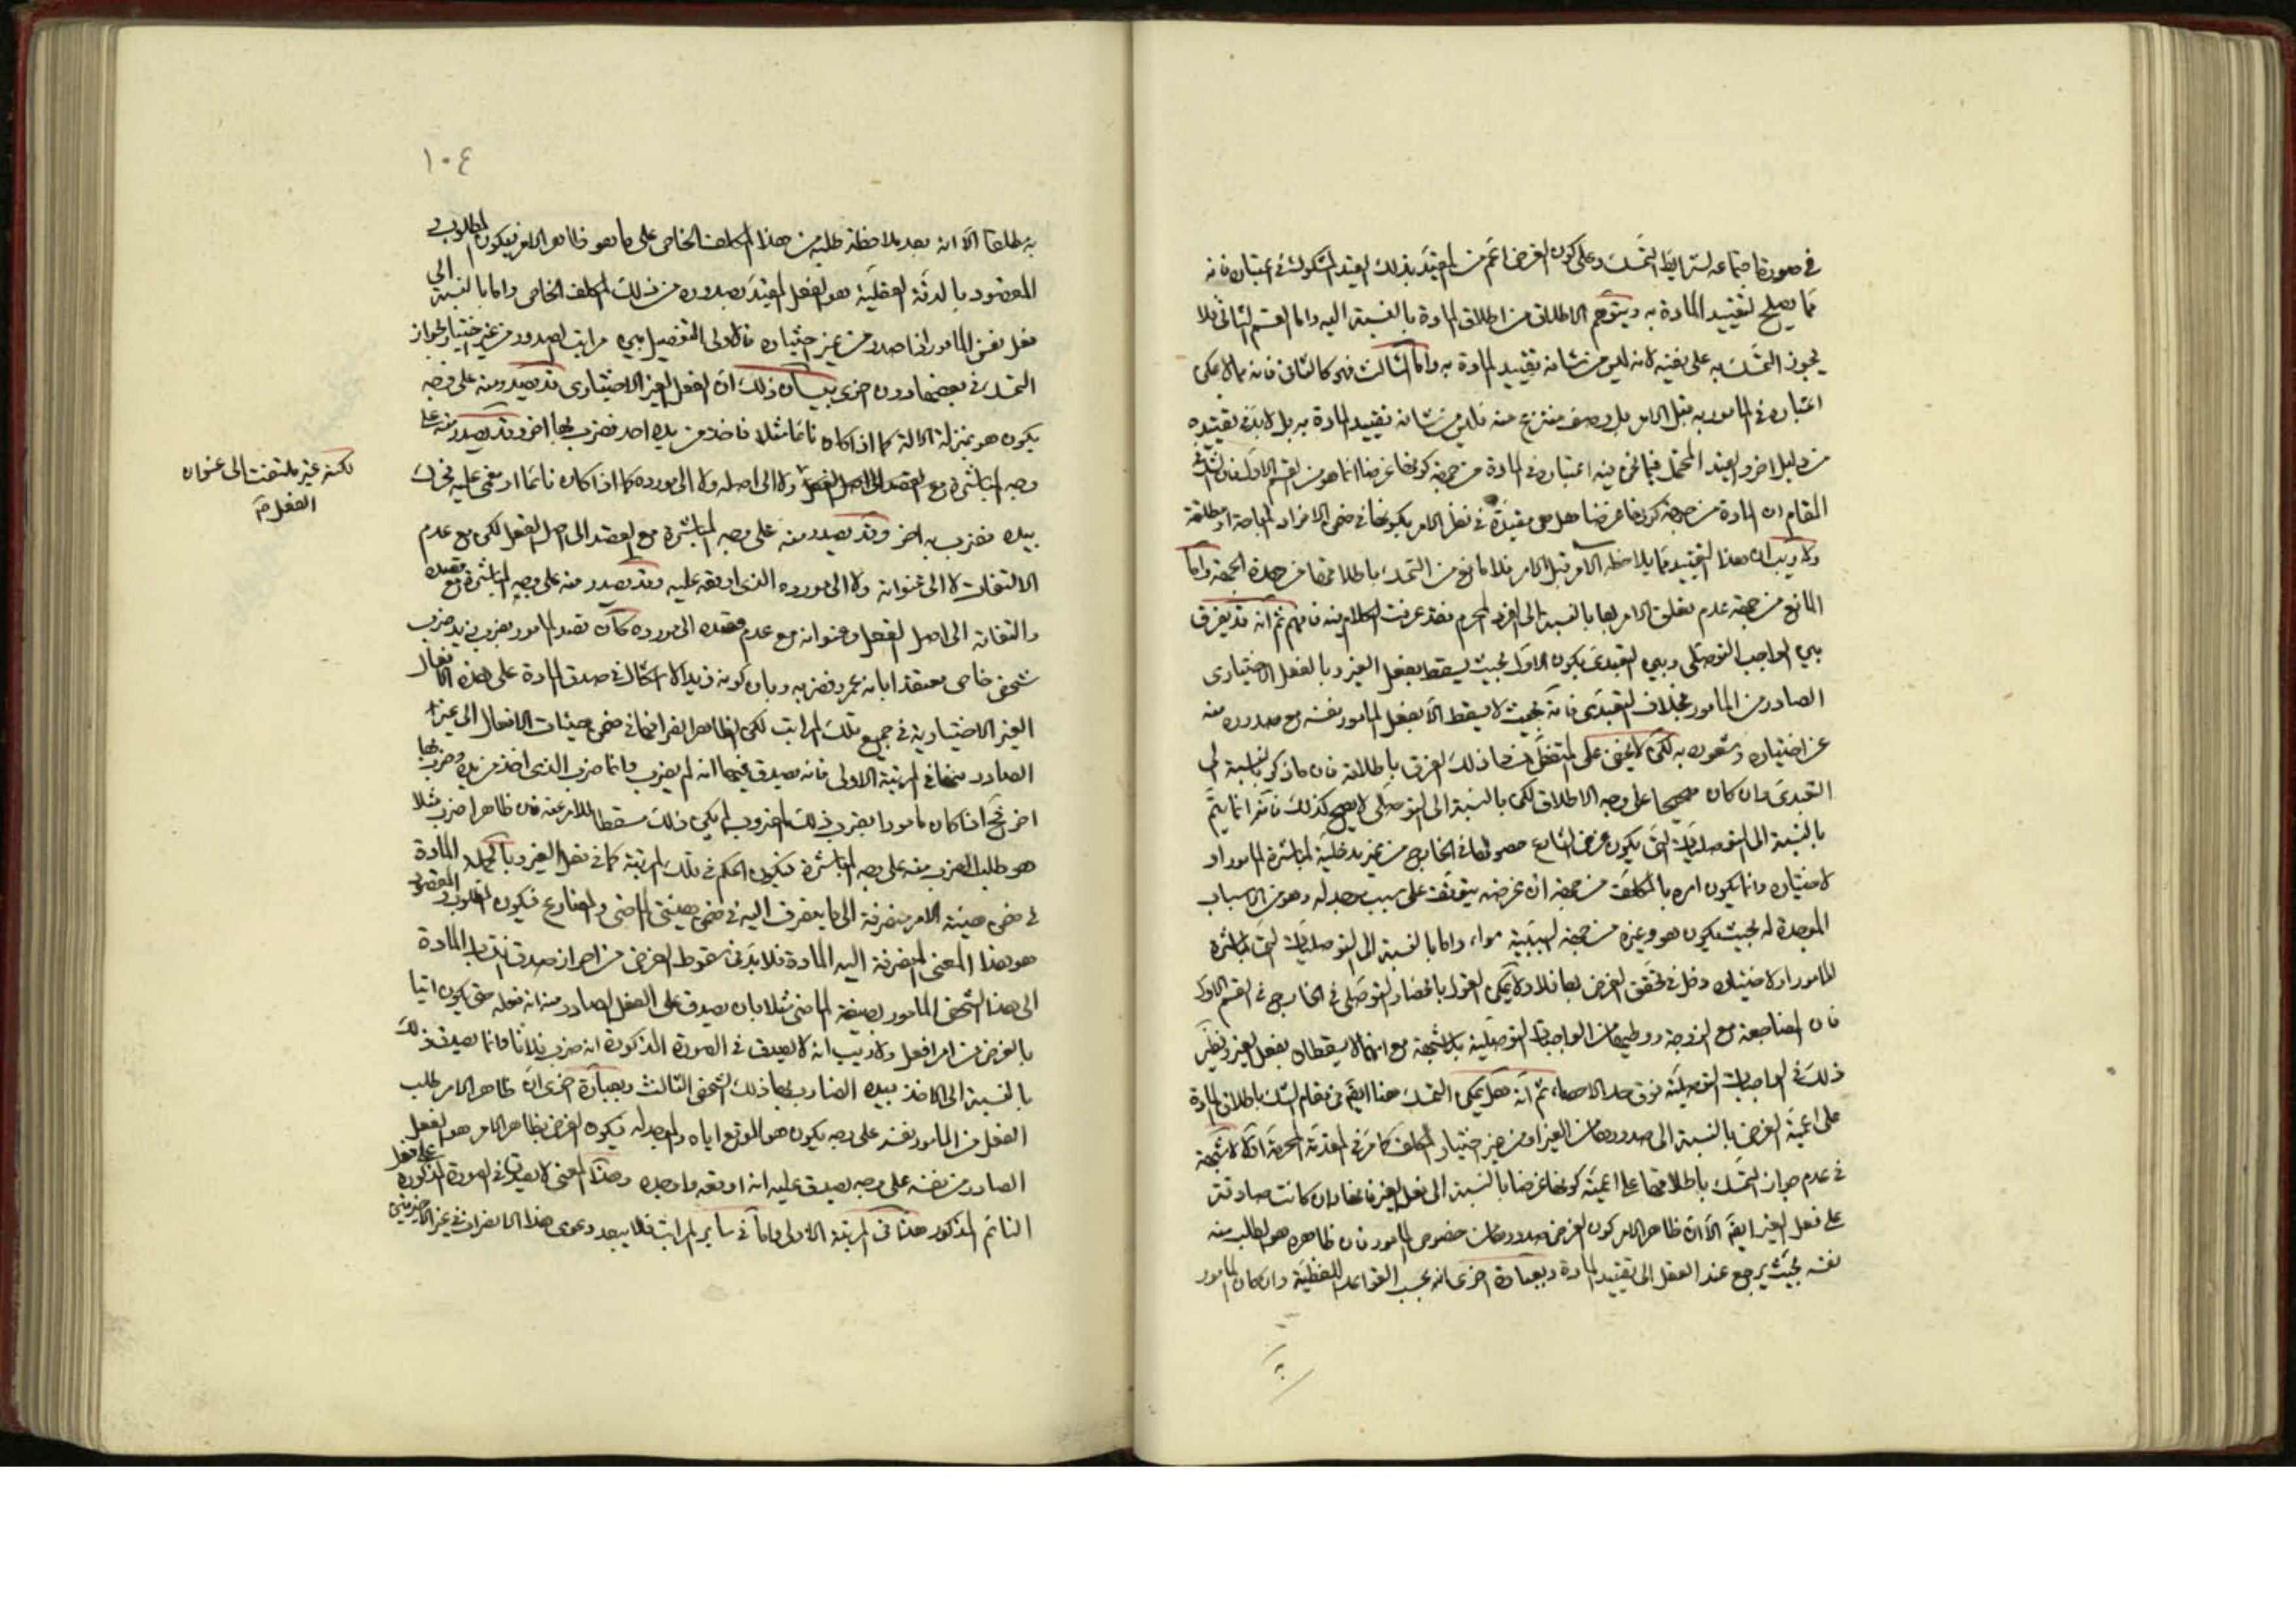 في صورة اجتماعه لشرايط التمسك وعلى كون الغرض اعم من المقيد بذلك القيد المشكوك في اعتباره فانه
مما يصلح لتقييد المادة به ويتوهم الاطلاق من اطلاق المادة بالنسبة اليه واما القسم الثاني فلا
يجوز التمسك به على نفيه لانه ليس من شانه تقييد المادة به واما الثالث فهو كالثاني فانه مما لا يمكن
اعتباره في المامور به قبل الامر بل وصف منتزع منه فليس من شانه تقييد المادة به بل لا بد في تقييده
من دليل اخر والقيد المحتمل فيما نحن فيه اعتباره في المادة من جهة كونها غرضا انما هو من القسم الاول فان الشك في
المقام ان المادة من جهة كونها غرضا هل هي مقيدة في نظر الامر بكونها في ضمن الافراد المباحة او مطلقة
ولا ريب ان هذا التقييد مما يلاحظه الامر قبل الامر فلا مانع من التمسك باطلاقها من هذه الجهة واما
المانع من جهة عدم تعلق الامر بها بالنسبة الى الفرد المحرم فقد عرفت الكلام فيه فافهم ثم انه قد يفرق
بين الواجب التوصلي وبين التعبدي بكون الاول بحيث يسقط بفعل الغير وبالفعل الاختياري
الصادر من المامور بخلاف التعبدي فانه بحيث لا يسقط الا بفعل المامور نفسه مع صدوره منه
عن اختياره وشعوره به لكن لا يخفى على المتفطن فساد ذلك الفرق باطلاقه فان ما ذكر بالنسبة الى
التعبدي وان كان صحيحا على وجه الاطلاق لكن بالنسبة الى التوصلي لا يصح كذلك فانه انما يتم
بالنسبة الى التوصليات التي يكون غرض الشارع حصولها في الخارج من غير مدخلية لمباشرة المامور او
لاختياره وانما يكون امره بالمكلف من جهة ان غرضه يتوقف على سبب موجد له وهو من الاسباب
الموجدة له بحيث يكون هو وغيره من جهة السببية سواء واما بالنسبة الى التوصليات التي لمباشرة
المامور او لاختياره دخل في تحقق الغرض بها فلا ولا يمكن القول بانحصار التوصلي في الخارج في القسم الاول
فان المضاجعة مع الزوجة ووطيها من الواجبات التوصلية بلا شبهة مع انهما لا يسقطان بفعل الغير ونظير
ذلك في الواجبات التوصلية فوق حد الاحصاء ثم انه هل يمكن التمسك هنا ايضا في مقام الشك باطلاق المادة
على اعمية الغرض بالنسبة الى صدورها من الغير او من غير اختيار المكلف كما مر في المقدمة المحرمة اولا لا شبهة
في عدم جواز التمسك باطلاقها على اعمية كونها غرضا بالنسبة الى فعل الغير فانها وان كانت صادقة
على فعل الغير ايضا الا ان ظاهر الامر كون الغرض صدورها من خصوص المامور فان ظاهره هو الطلب منه
نفسه بحيث يرجع عند العقل الى تقييد المادة وبعبارة اخرى انه بحسب القواعد اللفظية وان كان المامور
١٠٤
به مطلقا الا انه بعد ملاحظة طلبه من هذا المكلف الخاص على ما هو ظاهر الامر فيكون المطلوب و
المقصود بالدقة العقلية هو الفعل المقيد بصدوره من ذلك المكلف الخاص واما بالنسبة الى
فعل نفس المامور اذا صدر من غير اختياره فالاولى التفصيل بين مراتب الصدور من غير اختيار بجواز
التمسك في بعضها دون اخرى بيان ذلك ان الفعل الغير الاختياري قد يصدر منه على وجه
يكون هو بمنزلة الالة كما اذا كان نائما مثلا فاخذ من يده احد فضرب بها اخر وقد يصدر منه على
وجه المباشرة مع القصد الى اصل الفعل ولا الى اصله ولا الى مورده كما اذا كان نائما او مغمى عليه فحرك
بيده فضرب به اخر وقد يصدر منه على وجه المباشرة مع القصد الى اصل الفعل لكن مع عدم
الالتفات لا الى عنوانه ولا الى مورده الذي اوقعه عليه وقد يصدر منه على وجه المباشرة مع قصده
والتفاته الى اصل الفعل وعنوانه مع عدم قصده الى مورده كان قصد المامور بضرب زيد ضرب
شخص خاص معتقدا بانه عمرو فضربه وبان كونه زيدا لا اشكال في صدق المادة على هذه الافعال
الغير الاختيارية في جميع تلك المراتب لكن الظاهر انصرافها في ضمن هيئات الافعال الى غير
الصادر منها في المرتبة الاولى فانه يصدق فيها انه لم يضرب وانما ضرب الذي اخذ من يده وضرب بها
اخر فح اذا كان مامورا بضرب ذلك المضروب لم يكن ذلك مسقطا للامر عنه فان ظاهر اضرب مثلا
هو طلب الضرب منه على وجه المباشرة فيكون الحكم في تلك المرتبة كما في فعل الغير وبالجملة المادة
في ضمن هيئة الامر منصرفة الى ما ينصرف اليه في ضمن هيئتي الماضي والمضارع فيكون المطلوب والمقصود
هو هذا المعنى المنصرفة اليه المادة فلا بد في سقوط الغرض من احراز صدق انتساب المادة
الى هذا الشخص المامور بصيغة الماضي مثلا بان يصدق على الفعل الصادر منه انه فعله حتى يكون اتيا
بالغرض من امر افعل ولا ريب انه لا يصدق في الصورة المذكورة انه ضرب فلانا وانما يصدق ذلك
بالنسبة الى الاخذ بيده الضارب بها ذلك الشخص الثالث وبعبارة اخرى ان ظاهر الامر طلب
الفعل من المامور نفسه على وجه يكون هو الموقع اياه والموجد له فيكون الغرض بظاهر الامر هو الفعل
الصادر من نفسه على وجه يصدق عليه انه اوقعه واوجده وهذا المعنى لا يصدق في الصورة المذكورة على فعل
النائم المذكور هذا في المرتبة الاولى واما في ساير المراتب فلا يبعد دعوى هذا الانصراف في غير الاخيرتين
لكنه غير ملتفت الى عنوان
الفعل